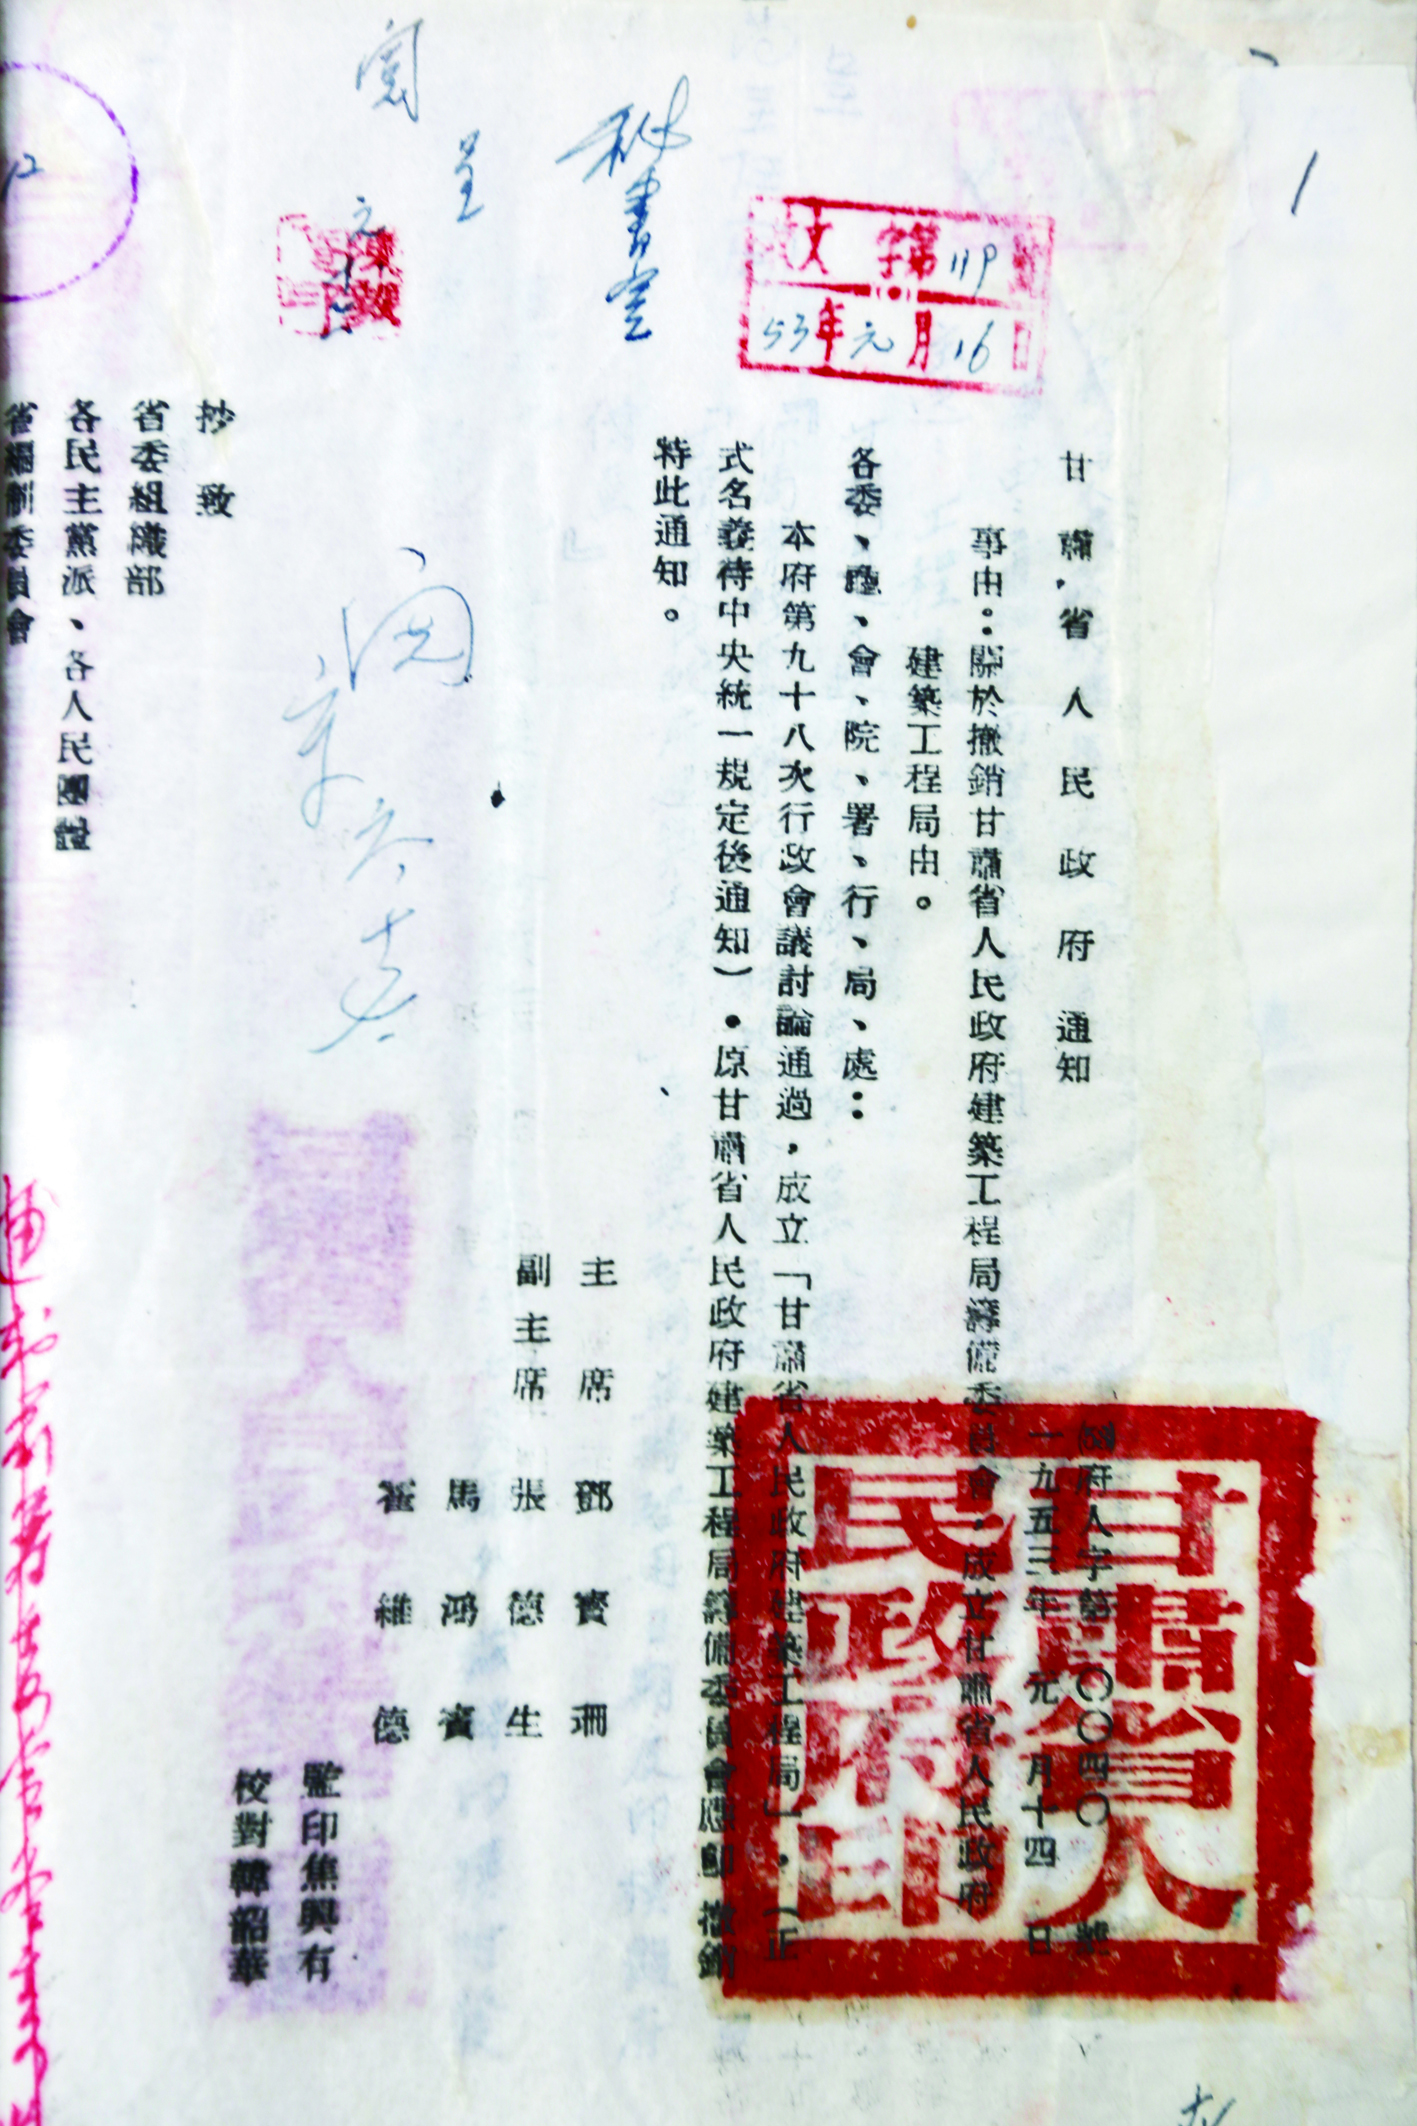 甘肅省人民政府通知
(53)府人字第〇〇四〇號
一九五三年元月十四日
事由：關於撤銷甘肅省人民政府建築工程局籌備委員會，成立甘肅省人民政府
建築工程局由。
各委、廳、會、院、署、行、局、處：
本府第九十八次行政會議討論通過，成立「甘肅省人民政府建築工程局」，（正
式名義待中央統一規定後通知）。原甘肅省人民政府建築工程局籌備委員會應即撤銷
特此通知。
主席 鄧寶珊
副主席 張德生
馬鴻賓
霍維德
監印焦興有
校對韓韶華
抄致
省委組織部
各民主黨派、各人民團體
省編制委員會
甘肅省人
民政府印
文字第119號
53年元月16日
秘書室
呈
閱